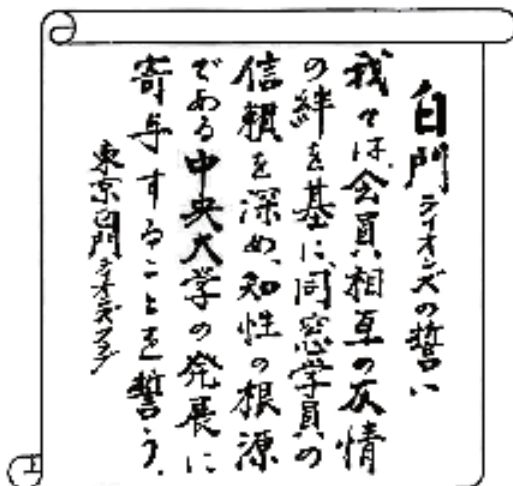 白門ライオンズの誓い
我々は、会員相互の友情
の絆を基に、同窓学員の
信頼を深め、知性の根源
である中央大学の発展に
寄与することを誓う。
東京白門ライオンズクラブ